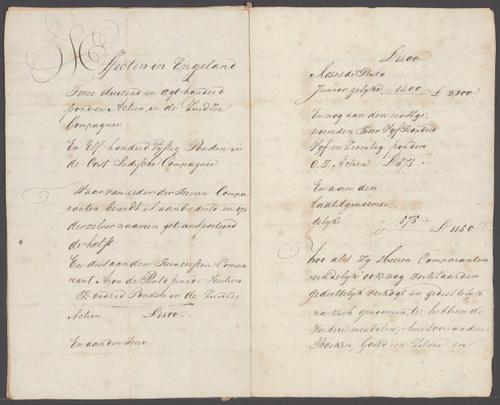 Effecten in Engeland
Twee duizend en agt honderd
ponden Actien in de Zuidzee
Compagnie
En Elf honderd Vyftig Ponden in
de Oost Indische Compagnie
Waar van ieder der Heeren Compa-
ranten bereids is aanbedeeld en op
derzelver naamen getransporteerd
de helft
En dus aan den Compa-
rant Aron de Pinto Junior
honderd Ponden in de Zuidzee
Actien £1400
En aan den Heer
£1400
Moses de Pinto
Junior gelyke 1400 £ 2800
En nog aan den eerstge-
noemden Heer Vyf honderd
Vyf en Zeventig ponden
O. I. Actien £575
En aan den
laatstgenoemde
gelyke 575 £ 1150
Zoo als zy Heeren Comparanten
ook nog verklaarden
gedeeltelyk verkogt en gedeeltelyk
na zich genoomen te hebben de
verdere meubelen, huiscieraaden
Boeken, Goud en Zilver en